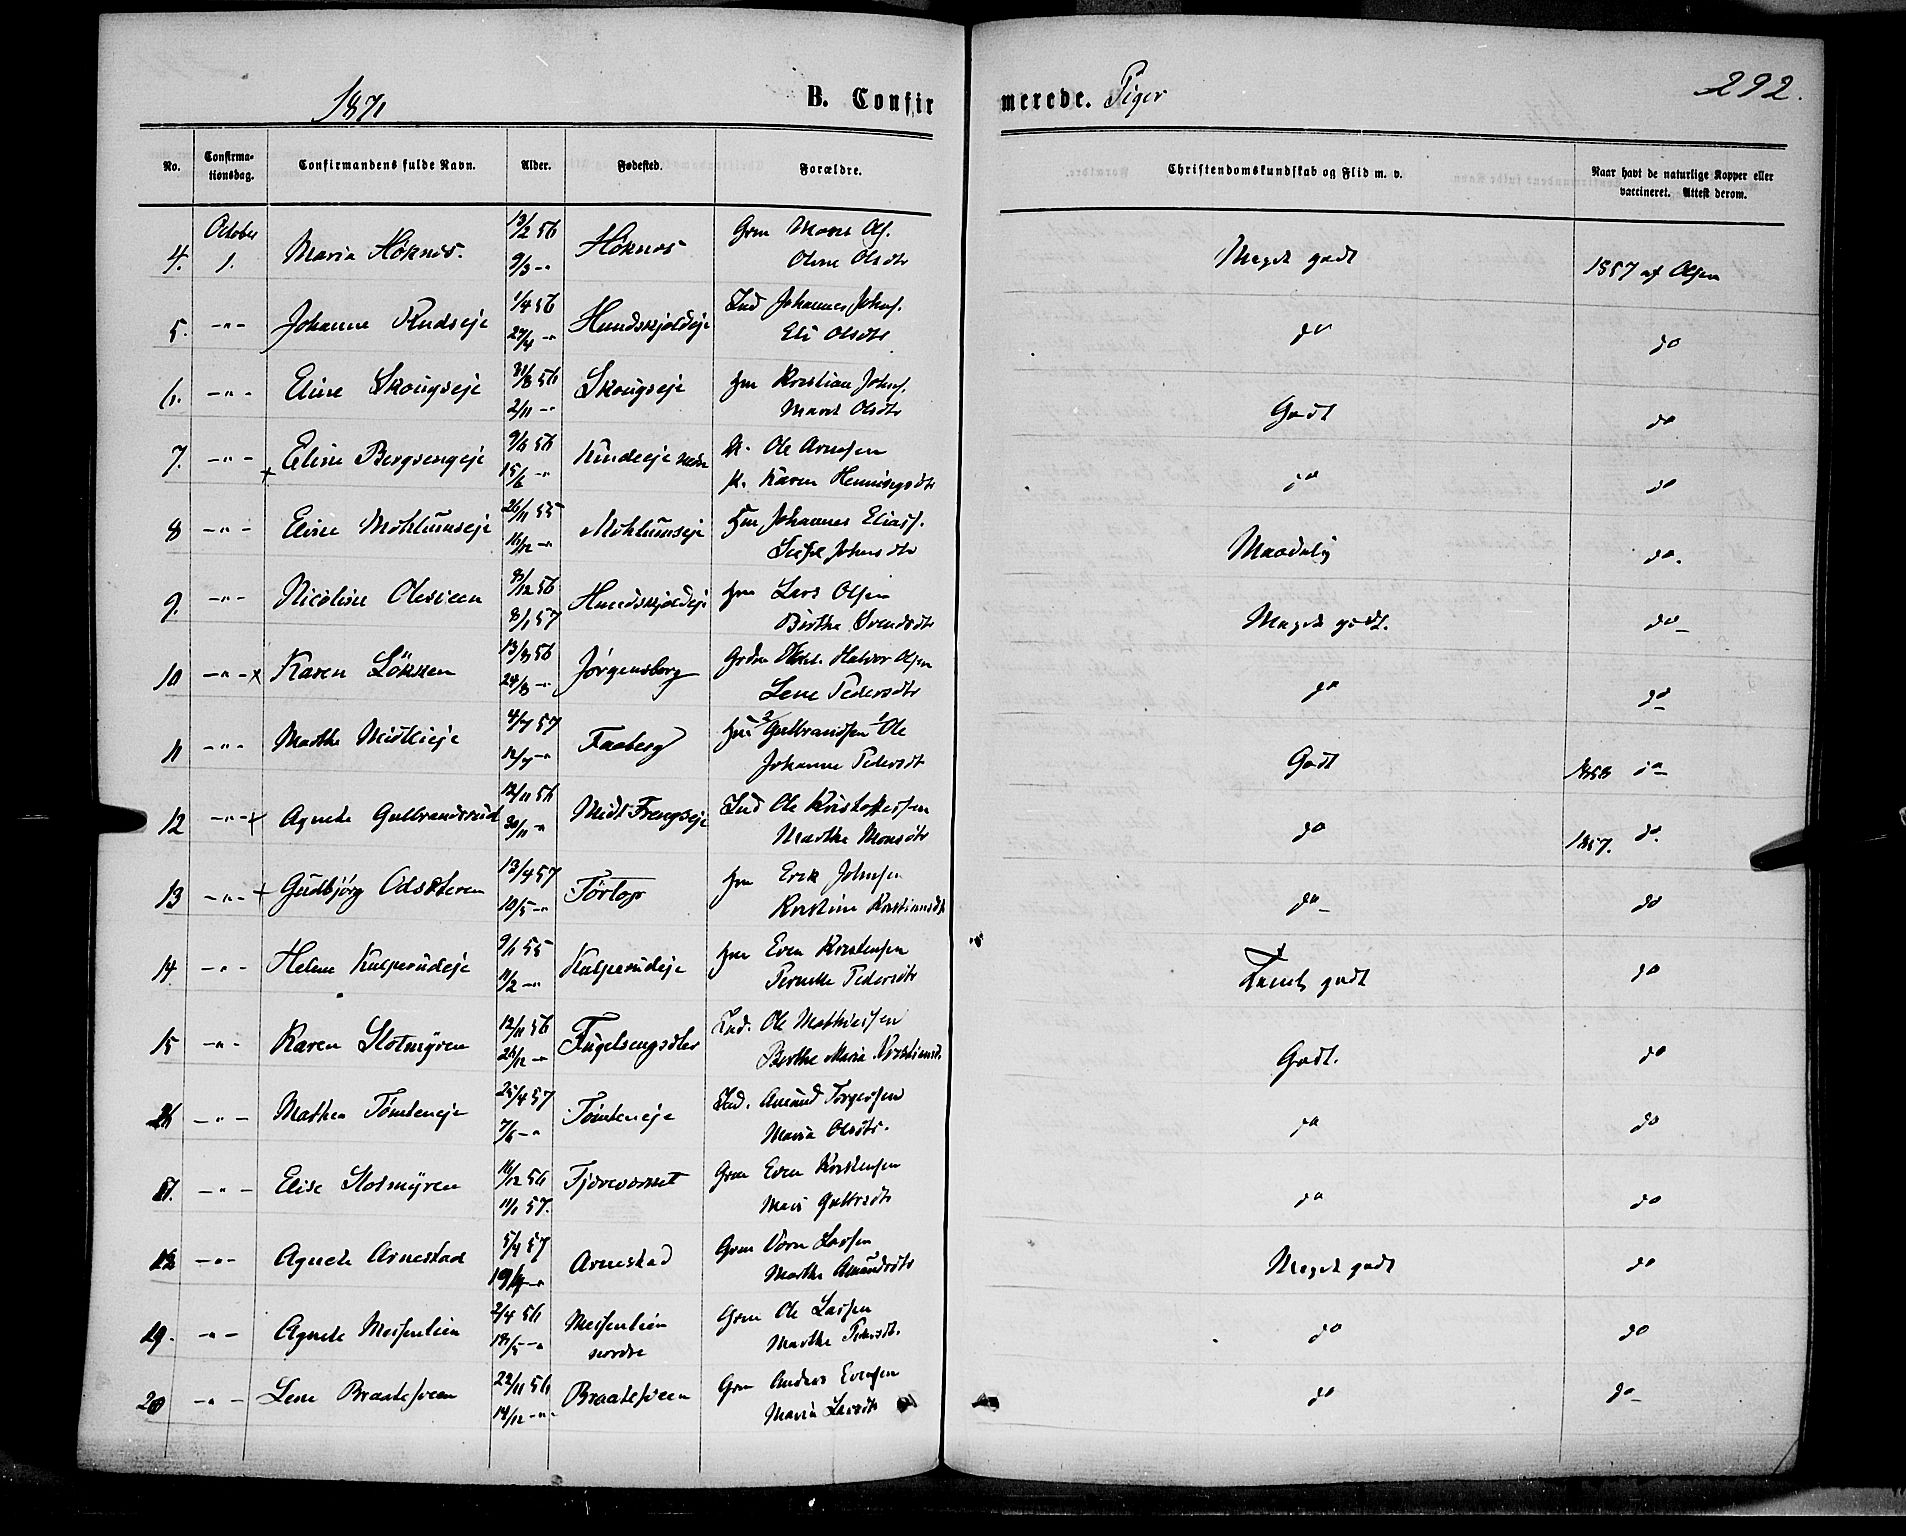 1871 B. Confirmerede. Piger 292.
No. Confirmationsdag. Confirmandens fulde Navn. Alder. Fødested. Forældre. Christendomskundskab og Flid m. v. Naar havt de naturlige Kopper eller vaccineret. Attest derom.
4. October 1. Maria Høknes. 13/2 56 9/3 -"- Høknes Grm Olsdtr Meget godt 1857 af Olsen
5. -"- Johanne Hundskjoldeje 1/4 56 27/4 -"- Ind Johannes Johns. Eli Olsdtr do do
6. -"- Elise Skougseje 56 2/11 -"- Skougseje Hm Kristian Johns. Marit Olsdtr Godt do
7. -"- + Eline Bergsengeje 56 15/6 -"- Ole Arnesen Karen Henningsdtr do do
8 -"- Eline Mohlumseje 26/11 55 16/12 -"- Mohlumseje Hm Johannes Eliass. Johnsdtr Maadelig do.
9. -"- Nicoline Olesveen 56 8/1 57 Hundskjoldeje Hm Lars Olsen Berthe Svendsdtr Meget godt. do -
10 -"- x Karen Løkken 13/3 56 24/3 -"- Jørgensberg Halvor Olsen Lene Pedersdtr do do -
11 -"- Marthe 4/7 57 12/7 -"- Faaberg Hm 2/ Gulbrandsen 1/ Ole Johanne Pedersdt Godt 1858 do -
12 -"- + Agnete Gulbrandsrud 12/11 56 30/11 -"- Midt Frengseje Ind Ole Kristoffersen Marthe Monsdtr do 1857. do.
13 -"- + Gudbjørg 13/4 57 10/5 -"- Tørtop Hm Erik Johnsen Kristine Kristiansdt do - do
14. -"- Helene Kalperudeje 9/1 55 11/2 -"- Kalperudeje Hm Even Kristensen Pernille Pedersdtr Temel. godt do
15 -"- Karen Slotmyren 12/11 56 26/12 -"- Ind. Ole Mathiassen Berthe Maria Kristiansd. Godt. do
-"- Mathea Tømteneje 25/4 57 7/6 -"- Tømteneje Ind. Amund Torgersen Maria Olsdtr. do do
-"- Elise Slotmyren 16/12 56 11/1 57. Grm Even Kristensen Mari Gulbrsdtr do do
18 -"- Agnete Arnestad 5/4 57 19/4 -"- Arnestad Grm Larsen Marthe Amundsdtr Meget godt do
19. -"- Agnete Meisenlien 2/4 56 18/5 -"- Meisenlien nordre Grm Ole Larsen Marthe Pedersdt. do do
20 -"- Lene Braatesveen 22/11 56 14/12 -"- Braatesveen Grm Anders Evensen Maria Larsdtr do do -